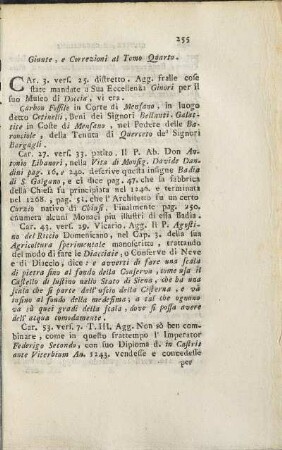 255
Giunte, e Correzioni al Tomo Quarto.
CAr. 3. vers. 25. distretto. Agg. fralle cose
state mandate a Sua Eccellenza Ginori per il
suo Museo di Doccia, vi era.
Carbon Fossile in Corte di Mensano, in luogo
detto Cetinelli, Beni dei Signori Bellanti. Galat-
tite in Coste di Mensano, nel Podere delle Ba-
ronciole, della Tenuta di Querceto de' Signori
Bargàgli.
Car. 27. vers. 33. patito. Il P. Ab. Don An-
tonio Libanori, nella Vita di Monsig. Davide Dan-
dini pag. 16. e 240. descrive questa insigne Badia
di S. Galgano, e ci dice pag. 47. che la fabbrica
della Chiesa fu principiata nel 1240. e terminata
nel 1268., pag. 51. che l'Architetto fu un certo
Curzio nativo di Chiusi. Finalmente pag. 250.
enumera alcuni Monaci più illustri di essa Badia.
Car. 43. vers. 29. Vicario. Agg. Il P. Agosti-
no del Riccio Domenicano, nel Cap. 3. della sua
Agricoltura sperimentale manoscritta, trattando
del modo di fare le Diacciaie, o Conserve di Neve
e di Diaccio, dice: e avverti di fare una scala
di pietra sino al fondo della Conserva, come usa il
Castello di Lustino nello Stato di Siena, che ha una
scala che si parte dell'uscio della Cisterna, e và
insino al fondo della medesima; a tal che ognuno
va sù quei gradi della scala, dove si possa avere
dell'acqua comodamente.
Car. 53. vers. 7. T. III. Agg. Non sò ben com-
binare, come in questo frattempo l'Imperator
Federigo Secondo, con suo Diploma d. in Castris
ante Viterbium An. 1243. vendesse e concedesse
per